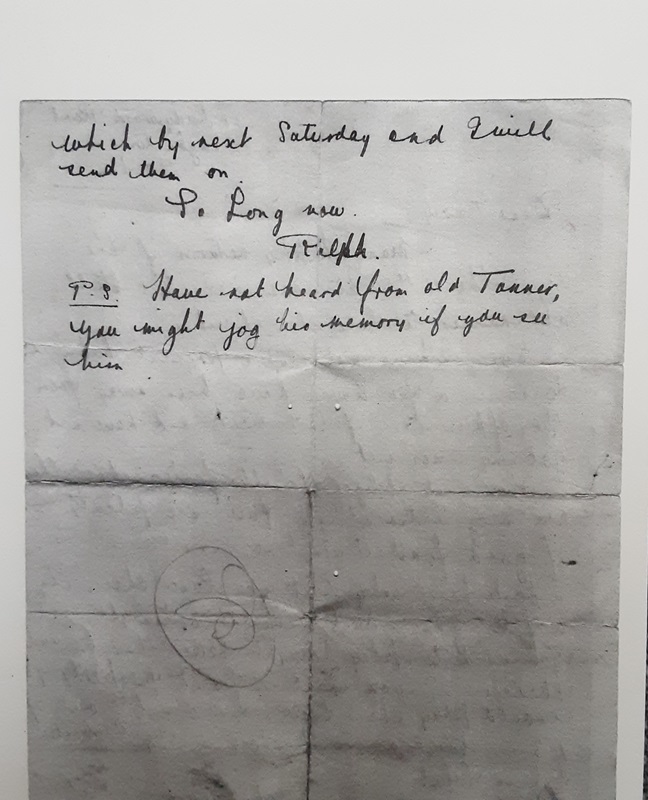 which by next Saturday and I will
send them on.
So Long now.
Ralph.
P.S. Have not heard from old Tanner,
you might jog his memory if you see
him